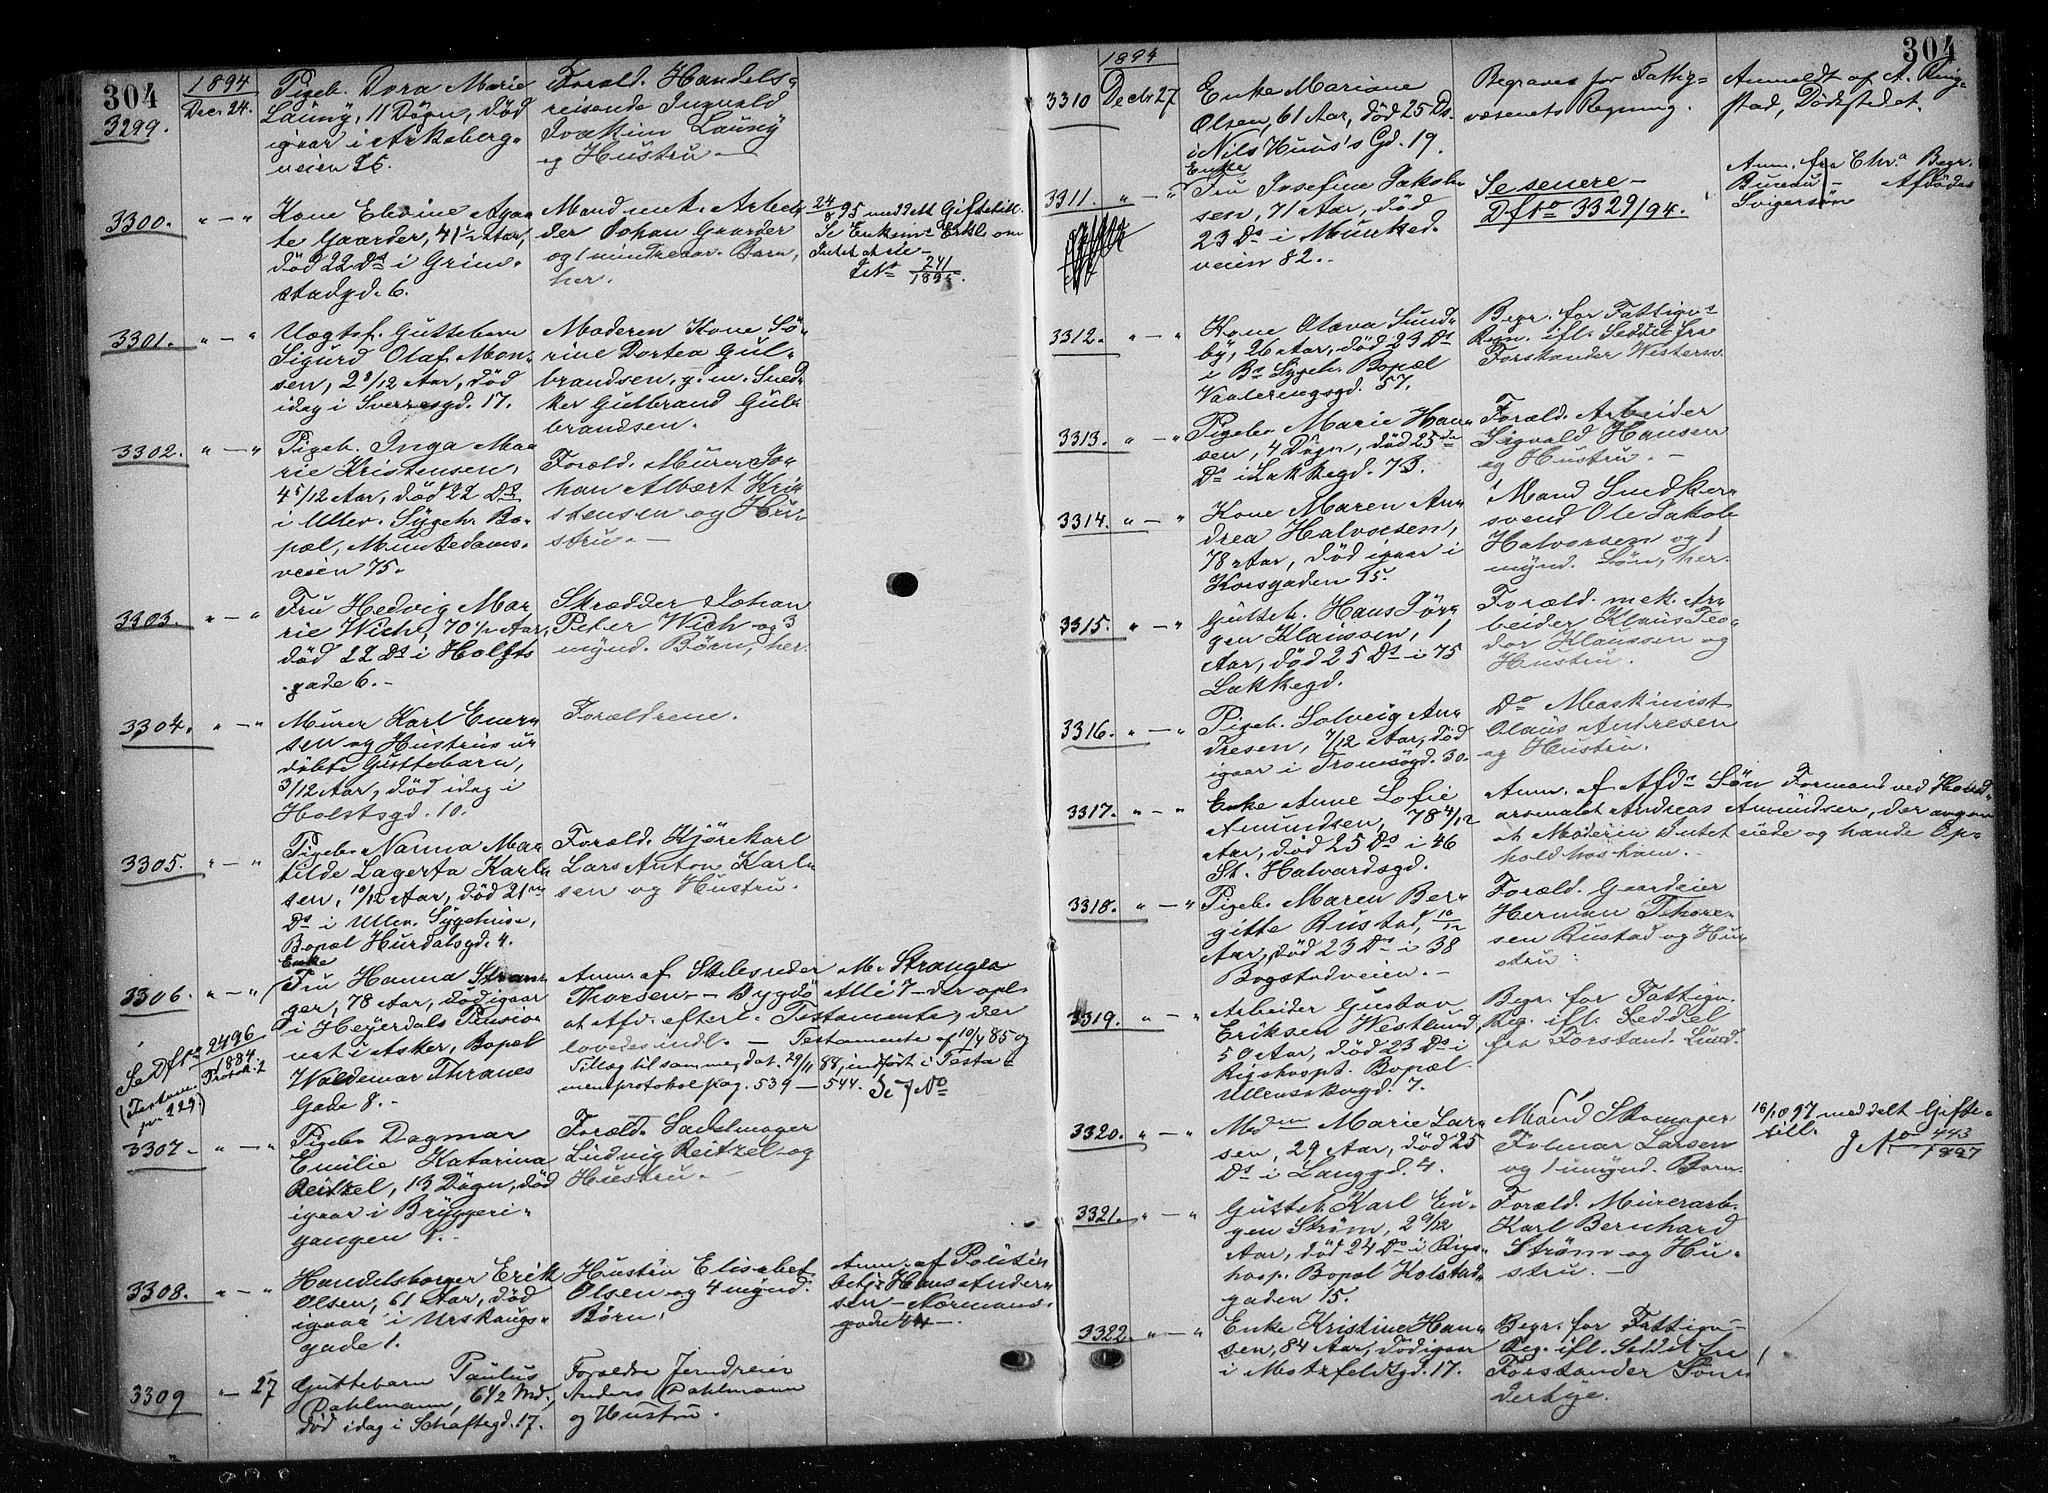 304
1894
3299. Dec. 24. Pigeb. Dora Marie
Launy, 11 Døgn, død
igaar i Akksberg-
veien 26.
Foræld. Handels-
reisende Ingvald
Joakim Launy
og Hustru —
3300. " — " Kone Elevine Aga-
te Gaarder, 41 1/2 Aar,
død 22 Ds i Grim-
stadgd. 6.
Mand mek. Arbei-
der Johan Gaarder
og 1 mindreaar. Barn,
her.
24/8 95 meddelt Giftetill.
Se Enkem. Erkl. om
Intet at eie —
J.No 241/1895.
3301. " — " Vægtsf. Guttebarn
Sigurd Olaf Mon-
sen, 2 9/12 Aar, død
idag i Sverresgd. 17.
Moderen Kone Sö-
rine Dortea Gul-
brandsen, g. m. Sned-
ker Gulbrand Gul-
brandsen.
3302. " — " Pigeb. Inga Ma-
rie Kristensen,
4 5/12 Aar, død 22 Ds
i Ullev. Sygeh. Bo-
pæl, Munkedams-
veien 75.
Foræld. Murer Jo-
han Albert Kri-
stensen og Hu-
stru. —
3303. " — " Fru Hedvig Ma-
rie Wich, 70 1/2 Aar,
død 22 Ds i Holsts
gade 6. —
Skrædder Johan
Peter Wich og 3
mynd. Börn, her.
3304. " — " Murer Karl Ener-
sen og Hustrus u-
døbte Guttebarn,
3/12 Aar, død idag i
Holstsgd. 10.
Forældrene.
3305. " — " Pigeb. Nanna Ma-
tilde Lagerta Karl-
sen, 10/12 Aar, død 21
Ds i Ullev. Sygehus,
Bopæl Hurdalsgd. 4.
Foræld. Kjörekarl
Lars Anton Karl-
sen og Hustru.
Enke
3306. " — " Fru Hanna Stran-
ger, 78 Aar, död igaar
i Heyerdals Pensio-
nat i Asker, Bopæl
Waldemar Thranes
Gade 8. —
Se Dfto 2496/1884.
Protok. 1
(Testam.
pr 229)
Anm. af Skibsreder M. Stranger
Thorsen — Bygdö Allé 7 — der opl.
at Afd. efterl. Testamente, der
lovedes indl. — Testamente af 10/4 85 og
Tillæg til samme, dat. 29/11 88, indført i Testa-
mentprotokol pag. 539 — 544. Se J No
3307. " — " Pigeb. Dagmar
Emilie Katarina
Reitzel, 13 Dögn, död
igaar i Bryggeri-
gangen 9. —
Foræld. Sadelmager
Ludvig Reitzel og
Hustru.
3308. " — " Handelsborger Erik
Olsen, 61 Aar, død
igaar i Urskougs-
gade 1.
Hustru Elisabet
Olsen og 4 mynd.
Börn.
Anm. af Politi-
betj. Hans Ander-
sen — Normans-
gade 44 —.
3309 " — 27 Guttebarn Paulus
Dahlmann, 6 1/2 Md.,
død idag i Schaftegd. 17.
Forældre Jerndreier
Anders Dahlmann
og Hustru.
304
1894
3310 Decbr 27 Enke Mariane
Olsen, 61 Aar, død 25 Ds.
i Nils Huus's Gd. 19.
Begraves for Fattig-
væsenets Regning.
Anmeldt af A. Ring-
stad, Dødsstedet.
Enke
3311. " — " Fru Josefine Jakob-
sen, 71 Aar, död
23 Ds i Munked.
veien 82.
Se senere —
Dfto 3329/94.
Anm. fra Chra Begr.
Bureau — Afdödes
Svigersön
3312. " — " Kone Olava Sund-
by, 26 Aar, död 23 Ds
i Bs Sygeh. Bopæl
Vaalerengsgd. 57.
Begr. for Fattigv.
Regn. ifl. Seddel fra
Forstander Western.
3313. " — " Pigeb. Marie Han-
sen, 4 Dögn, död 25
Ds i Lakkegd. 73.
Foræld. Arbeider
Sigvald Hansen
og Hustru. —
3314. " — " Kone Maren An-
drea Halvorsen,
78 Aar, död igaar i
Korsgaden 15.
Mand Snedker-
svend Ole Jakob
Halvorsen og 1
mynd. Sön, her.
3315. " — " Gutteb. Hans Jör-
gen Klaussen, 1
Aar, død 25 Ds i 75
Lakkegd.
Foræld. mek. Ar-
beider Klaus Teo-
dor Klaussen og
Hustru.
3316. " — " Pigeb. Solveig An-
dresen, 7/12 Aar, död
igaar i Tromsögd. 30.
Do Maskinist
Olaus Andresen
og Hustru.
3317. " — " Enke Anne Sofie
Amundsen, 78 4/12
Aar, död 25 Ds i 46
St. Halvardsgd.
Anm. af Afds Sön Formand ved Hoved-
arsenalet Andreas Amundsen, der angav
at Moderen Intet eiede og havde Op-
hold hos ham. —
3318. " — " Pigeb. Maren Ber-
gitte Rustad, 10/12
Aar, död 23 Ds i 38
Bogstadveien. —
Foræld. Gaardeier
Herman Thore-
sen Rustad og Hu-
stru.
3319. " — " Arbeider Gustav
Eriksen Westlund,
50 Aar, död 23 Ds i
Rigshospt. Bopæl
Ullensakergd. 7.
Begr. for Fattigv.
Reg. ifl. Seddel
fra Forstand. Lund.
3320. " — " Madm Marie Lar-
sen, 29 Aar, död 25
Ds i Langgd. 4.
Mand Skomager
Folmar Larsen
og 1 umynd. Barn.
16/10 97 meddelt Gifte-
till.
J No 443/1897
3321. " — " Gutteb. Karl Eu-
gen Ström, 2 9/12
Aar, död 24 Ds i Rigs-
hosp. Bopæl Kolstad-
gaden 15.
Foræld. Murerarb.
Karl Bernhard
Ström og Hu-
stru. —
3322. " — " Enke Kristine Han-
sen, 84 Aar, död igaar
i Motzfeldtsgd. 17.
Begr. for Fattigv.
Reg. ifl. Seddel fra
Forstander Sön-
derbye.